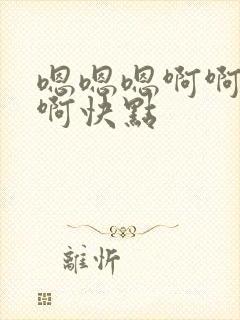 嗯嗯嗯啊啊
啊快點
離忻